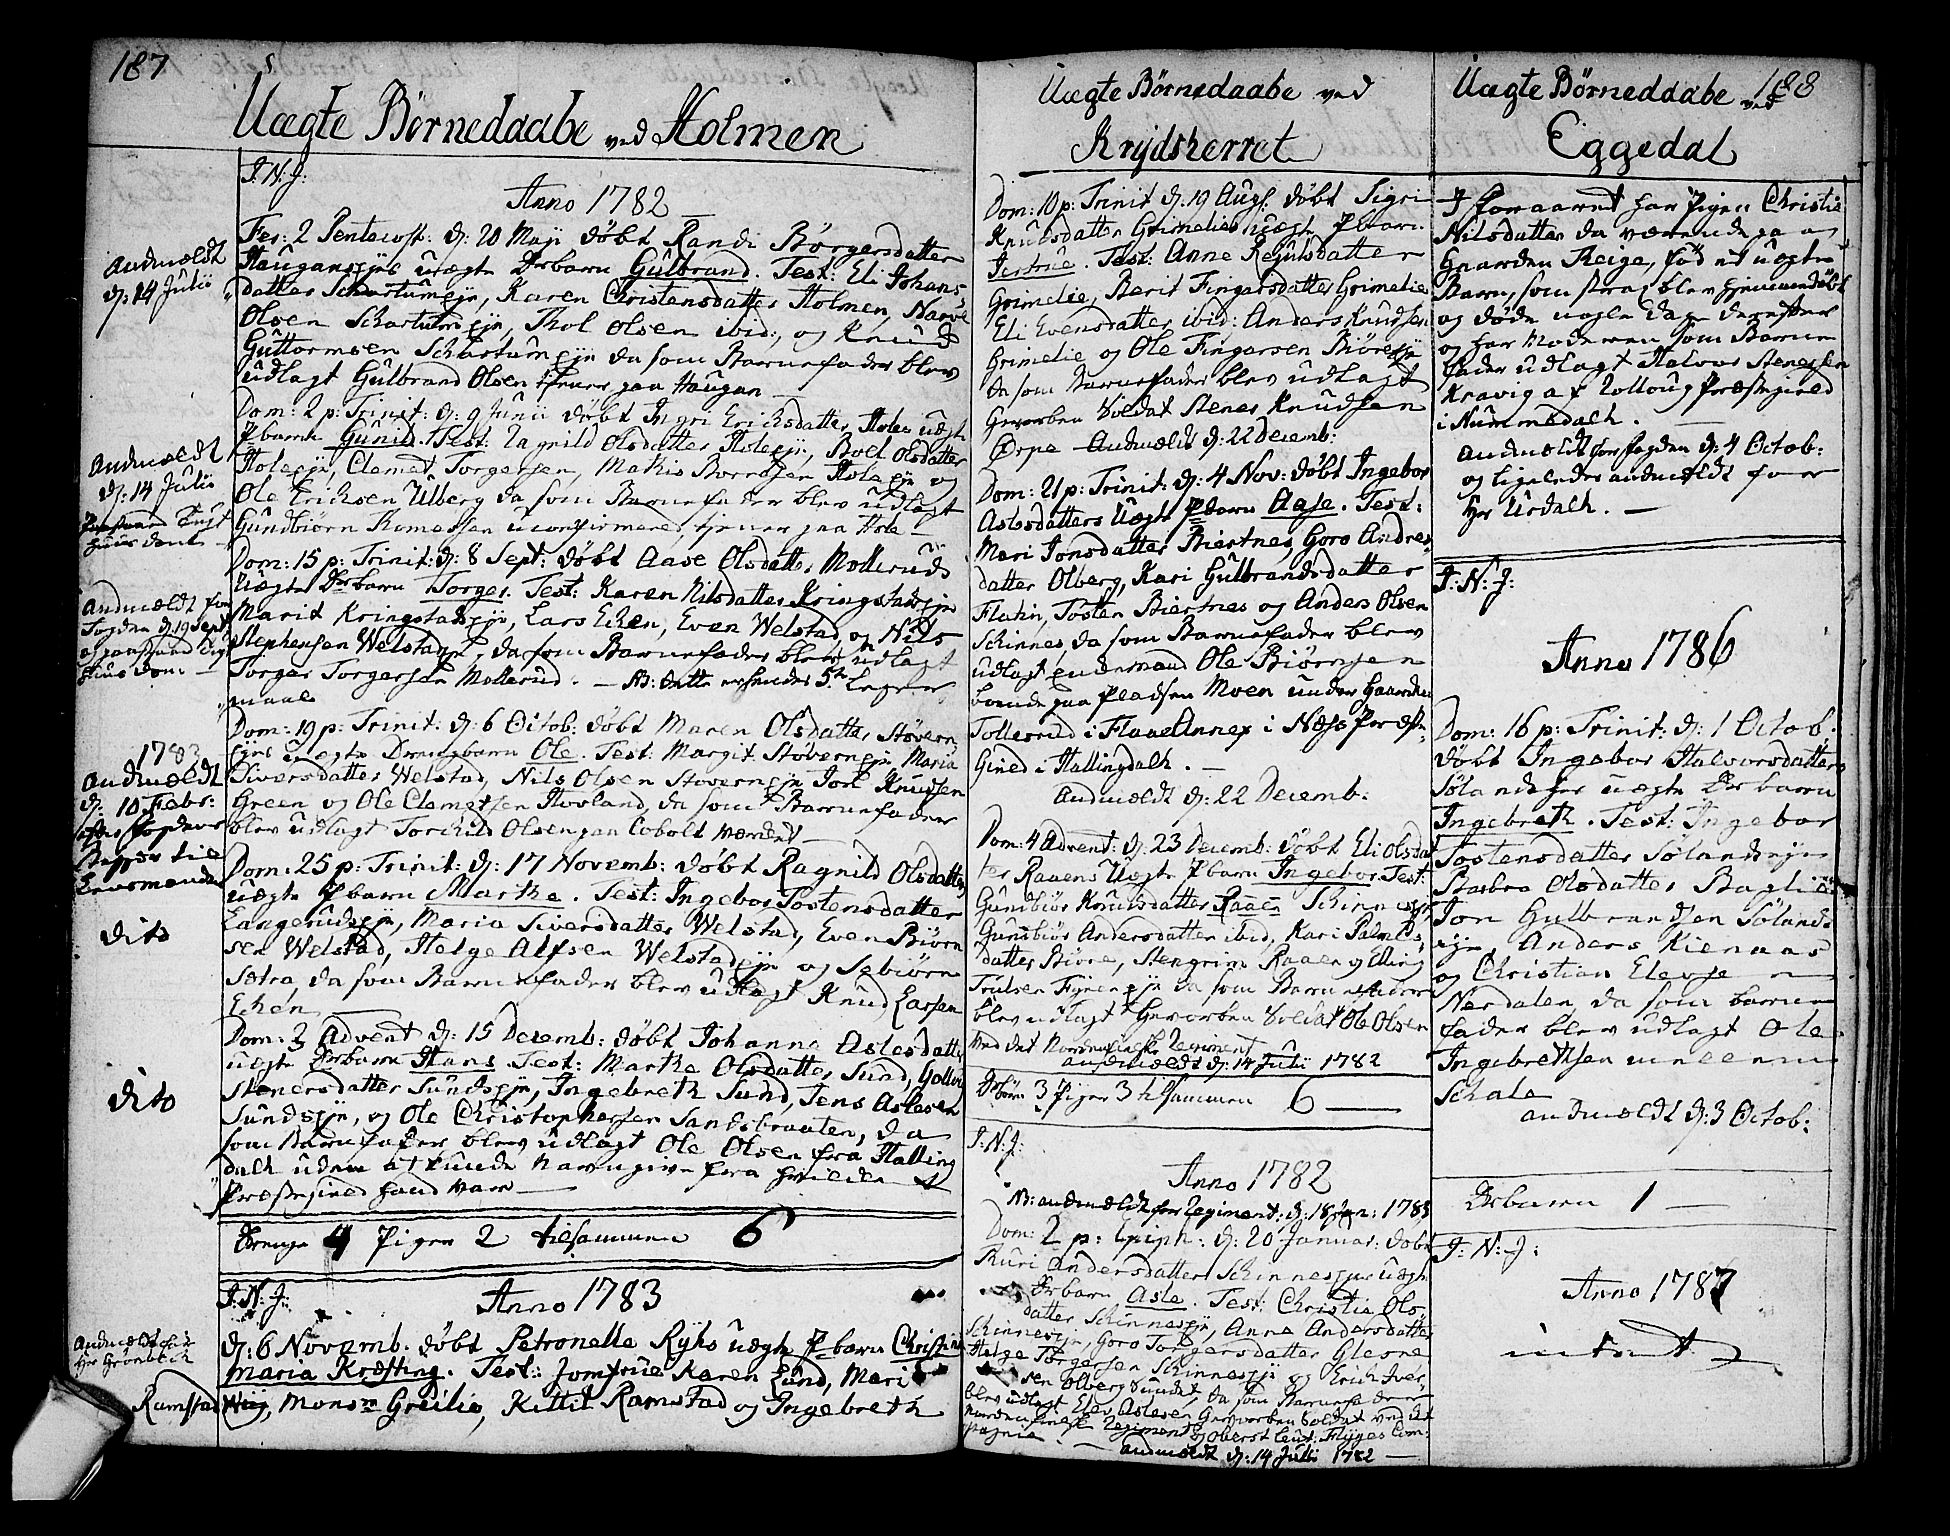 187
Uægte Børnedaabe ved Holmen
J: N: J:
Anno 1782
Fer: 2 Pentecost: d: 20 Maji døbt Randi Børgersdatter
Hauganseje uægte Drbarn Gulbrand. Test: Eli Johans-
datter Schartumseje, Karen Christensdatter Holmen, Narve
Olsen Schartumseje, Thol Olsen ibid:, og Knud
Guttormsen Schartumseje da som Barnefader blev
udlagt Gulbrand Olsen tiener paa Haugan
Anmældt
d: 14 Julii
Dom: 2 p: Trinit: d: 9 Junii døbt Ingri Erichsdatter Holes uægte
P barn Gunild. Test: Ragnild Olsdatter Holeeje, Boel Olsdatter
Holeeje, Clemet Torgersen, Mathis Borresen Holeeje og
Ole Erichsen Ulberg da som Barnefader blev udlagt
Gundbiørn Thomessen uconfirmeret, tjener paa Hole
Anmældt
d: 14 Julii
Dom: 15 p: Trinit: d: 8 Sept: døbt Aase Olsdatter Mollerüds
Uægte Drbarn Torger. Test: Karen Nilsdatter Kringstadeje
Marit Kringstadeje, Lars Echen, Even Welstad, og Nils
Stephensen Welstadeje, da som Barnefader blev udlagt
Torger Torgersen Mollerud. — NB: dette er hendes 5te Leyer-
maal
Anmældt for
Fogden d: 19 Sept:
Dom: 19 p: Trinit: d: 6 Octob: døbt Maren Olsdatter Støvern
ejes uægte Drengebarn Ole. Test: Margit Støverneje Maria
Siversdatter Welstad, Nils Olsen Stoverneje Jon Knudsen
Green og Ole Clemetsen Hovland, da som Barnefader
blev udlagt Torchild Olsen paa Cobolt Værdet
1783
Anmældt
d: 10 Febr:
Dom: 25 p: Trinit: d: 17 Novemb: døbt Ragnild Olsdatters
uægte P barn Marthe. Test: Ingebor Tostensdatter
Langerudseje, Maria Siversdatter Welstad, Even Biørn
sen Welstad, Helge Alfsen Welstadeje og Sebiørn
Sætra, da som Barnefader blev udlagt Knud Larsen
Echen
dito
Dom: 3 Advent d: 15 Decemb: døbt Johanna Aslesdatter
uægte Drbarn Hans. Test: Marthe Olsdatter Sund, Gollvi
Stenersdatter Sundseje, Ingebreth Sund, Jens Aslesen
Sundseje, og Ole Christophersen Sandsbraaten, da
som Barnefader blev udlagt Ole Olsen fra Halling
dalh uden at kunde Navngive fra hvilket
Præstegield hand var
dito
Drenge 4 Piger 2 tilsammen 6
J: N: J:
Anno 1783
d: 6 Novemb. døbt Petronelle Ryhs uægte P barn Christine
Maria Kræfting. Test: Jomfrue Karen Lund, Mari
Ramstad, Monsr Greilio, Kittil Ramstad og Ingebreth
Uægte Børnedaabe ved
Krydsherret
Dom: 10 p: Trinit d: 19 Aug: døbt Sigri
Knudsdatter Grimelies uægte P barn
Jertrue. Test: Anne Rejulsdatter
Grimelie, Berit Fingarsdatter Grimelie
Eli Evensdatter ibid: Anders Knudsen
Grimelie og Ole Fingarsen Biøreeje
da som Barnefader blev udlagt
Gevorben Soldat Stener Knudsen
Ørpe Anmældt d: 22 Decemb:
Dom: 21 p: Trinit: d: 4 Nov: døbt Ingebor
Aslesdatters Uægte P barn Aase. Test:
Mari Jonsdatter Biertnes Goro Andres-
datter Olberg, Kari Gulbrandsdatter
Flahin, Tosten Biertnes og Anders Olsen
Schinnes, da som Barnefader blev
udlagt endemand Ole Biørnsen
boende paa Pladsen Moen under Gaarden
Tollesrud i Flaae Annex i Næss Præste-
Gield i Hallingdalh. —
Anmældt d: 22 Decemb:
Dom: 4 Advent: d: 23 Decemb: døbt Eli Olsdat
ter Raaens Uægte P barn Ingebor. Test:
Gundbiør Knudsdatter Raaen Schinneseje
Gunbiør Andersdatter ibid, Kari Palms
datter Biøre, Stengrim Raaen og Elling
Truelsen Fyreneje da som Barnefader
blev udlagt Gevorben Soldat Ole Olsen
ved det Nordenfieldske Regiment
anmældt d: 14 Julii 1782
Drbørn 3 Piger 3 tilsammen 6
J: N: J:
Anno 1782
NB: anmældt for Regiment: d: 18 Jan: 1783
Dom: 2 p: Epiph: d: 20 Januar: døbt
Thuri Andersdatter Schinnesejes uægte
Drbarn Asle. Test: Christie Ols-
datter Schinneseje, Anne Andersdatter
Schinneseje, Goro Torgersdatter Glesne
Helge Torgersen Schinneseje og Erich Iver-
sen Olberg Sundet, da som Barnefader
blev udlagt Elev Aslesen Gevorben Soldat ved det
Nordenfield: Regiment og Oberst Leut: Flyges Com-
pagnie. — anmældt d: 14 Julii 1782 —
Uægte Børneddabe ved
188
Eggedal
I foraaret har Pigen Christie
Nilsdatter da værende paa
Gaarden Theige, fød et uægte
Barn, som strax blev hjemmedøbt
og døde nogle dage derefter
og har Moderen som Barne
fader udlagt Halvor Stenersen
Kravig af Rolloug Præstegield
i Nummedalh. —
Anmældt for fogden d: 4 Octob:
og ligeledes anmældt for
Hr Urdalh. —
J: N: J:
Anno 1786
Dom: 16 p: Trinit: d: 1 Octob:
døbt Ingebor Halvorsdatter
Sølandsejes uægte Drbarn
Ingebreth. Test: Ingebor
Tostensdatter Sølandseje
Barbro Olsdatter Baglie
Jon Gulbrandsen Sølands-
eje, Anders Kienaas
og Christian Elevse
Nerdalen, da som barne
fader blev udlagt Ole
Ingebrethsen
Schale
anmældt d: 3 Octob:
Drbarn 1 —
J: N: J:
Anno 1787
intet